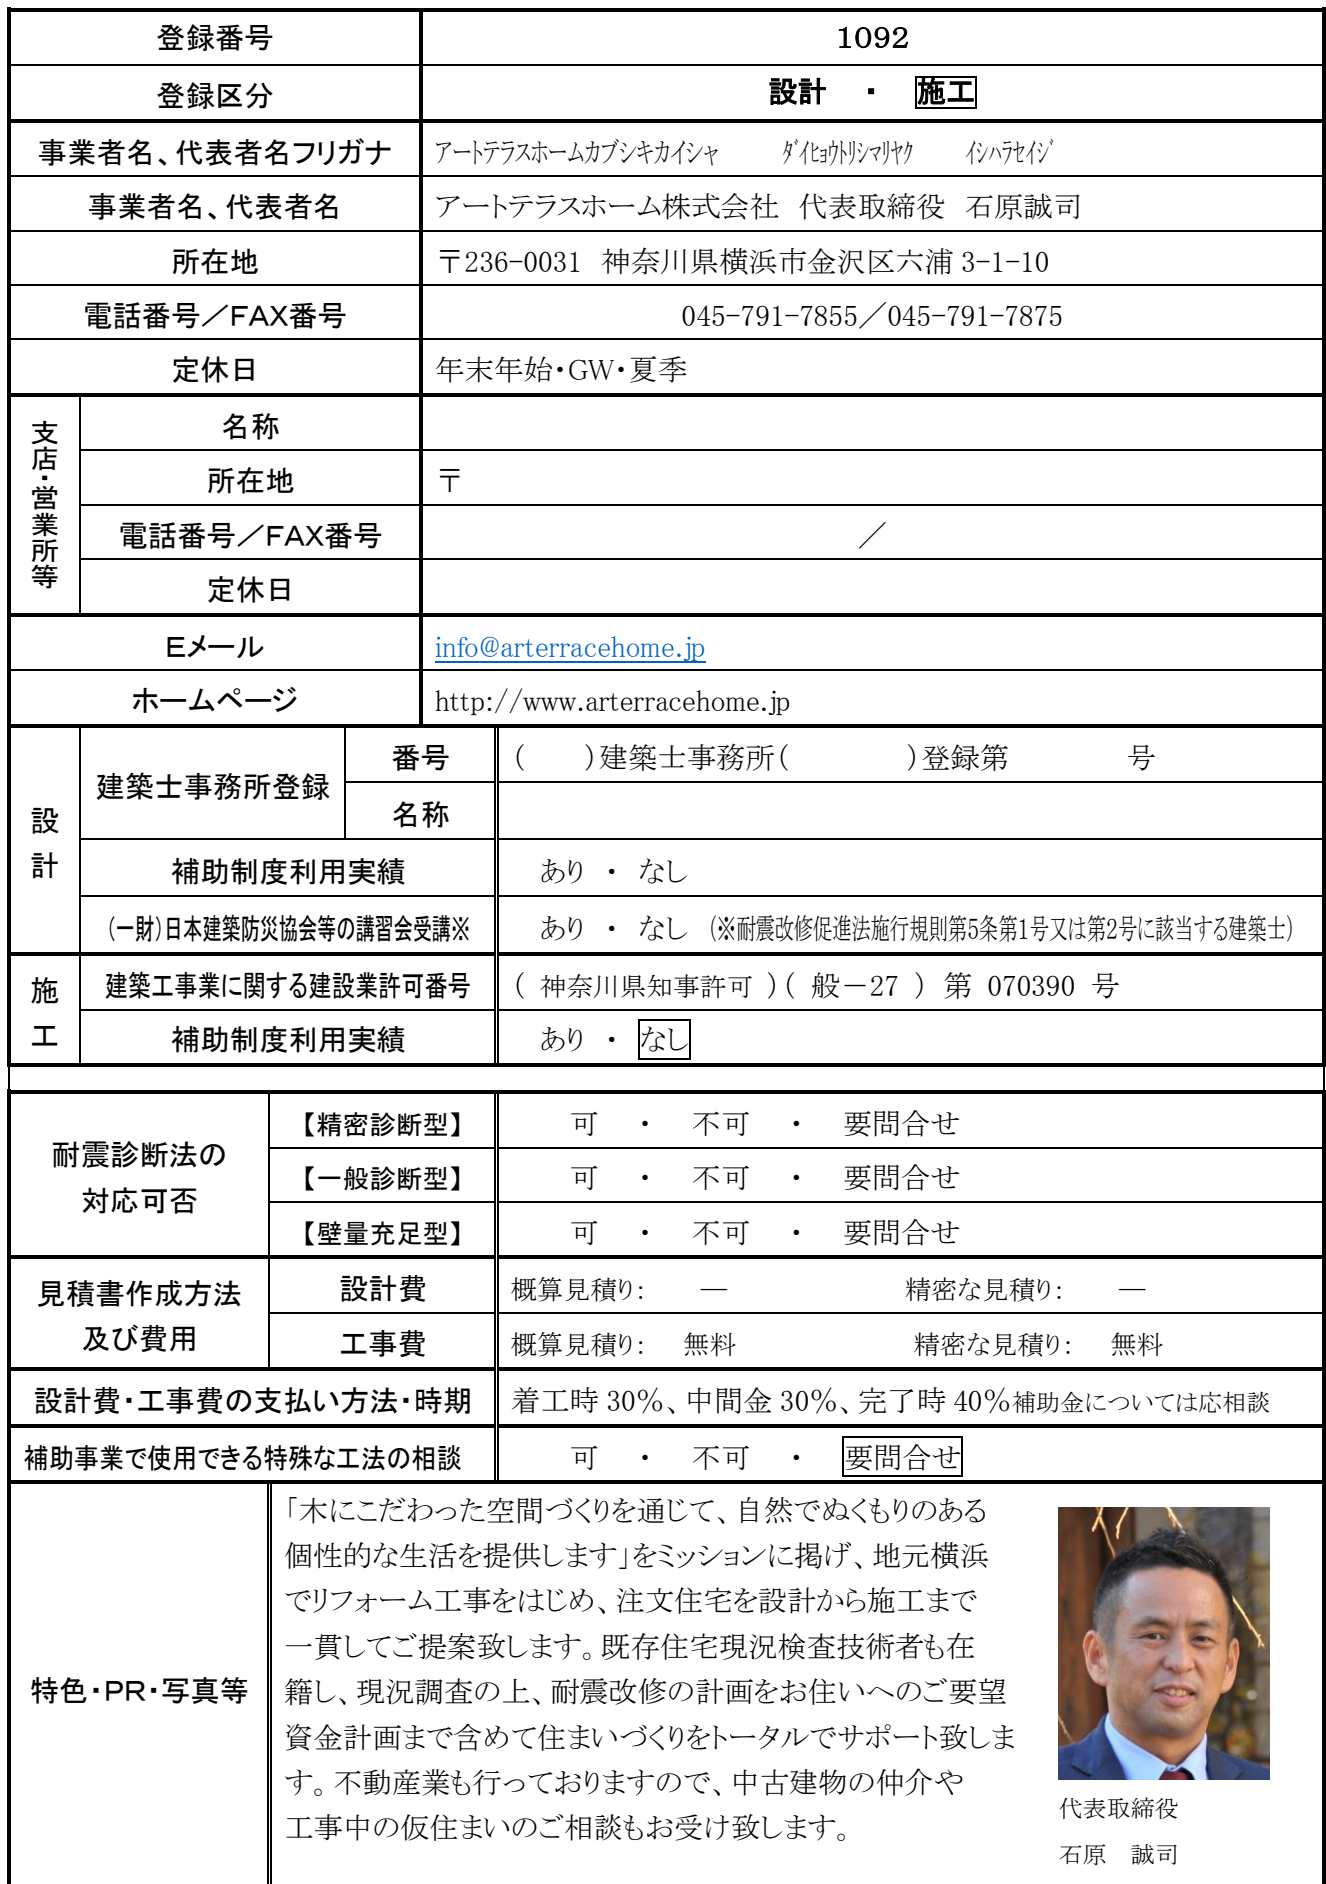 登録番号 1092
登録区分 設計 ・ 施工
事業者名、代表者名フリガナ アートテラスホームカブシキカイシャ ダイヒョウトリシマリヤク イシハラセイジ
事業者名、代表者名 アートテラスホーム株式会社 代表取締役 石原誠司
所在地 〒236-0031 神奈川県横浜市金沢区六浦 3-1-10
電話番号／FAX番号 045-791-7855／045-791-7875
定休日 年末年始・GW・夏季
支店・営業所等
名称
所在地 〒
電話番号／FAX番号 ／
定休日
Eメール info@arterracehome.jp
ホームページ http://www.arterracehome.jp
設計
建築士事務所登録
番号 ( )建築士事務所( )登録第 号
名称
補助制度利用実績 あり ・ なし
(一財)日本建築防災協会等の講習会受講※ あり ・ なし (※耐震改修促進法施行規則第5条第1号又は第2号に該当する建築士)
施工
建築工事業に関する建設業許可番号 ( 神奈川県知事許可 )( 般－27 ) 第 070390 号
補助制度利用実績 あり ・ なし
耐震診断法の
対応可否
【精密診断型】 可 ・ 不可 ・ 要問合せ
【一般診断型】 可 ・ 不可 ・ 要問合せ
【壁量充足型】 可 ・ 不可 ・ 要問合せ
見積書作成方法
及び費用
設計費 概算見積り： ― 精密な見積り： ―
工事費 概算見積り： 無料 精密な見積り： 無料
設計費・工事費の支払い方法・時期 着工時 30％、中間金 30％、完了時 40％補助金については応相談
補助事業で使用できる特殊な工法の相談 可 ・ 不可 ・ 要問合せ
特色・PR・写真等
「木にこだわった空間づくりを通じて、自然でぬくもりのある
個性的な生活を提供します」をミッションに掲げ、地元横浜
でリフォーム工事をはじめ、注文住宅を設計から施工まで
一貫してご提案致します。既存住宅現況検査技術者も在
籍し、現況調査の上、耐震改修の計画をお住いへのご要望
資金計画まで含めて住まいづくりをトータルでサポート致しま
す。不動産業も行っておりますので、中古建物の仲介や
工事中の仮住まいのご相談もお受け致します。
代表取締役
石原 誠司